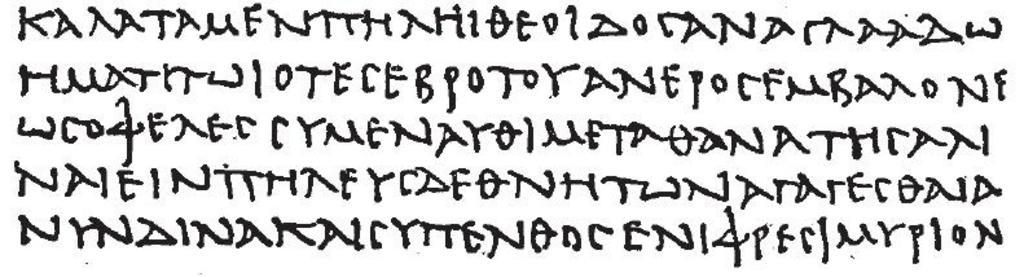 ΚΑΛΑΤΑΜΕΝΠΗΛΗΙΘΕΟΙΔΟϹΑΝΑΓΛΑΑΔΩ
ΗΜΑΤΙΤΩΙΟΤΕϹΕΒΡΟΤΟΥΑΝΕΡΟϹΕΜΒΑΛΟΝΕ
ΩϹΟΦΕΛΕϹϹΥΜΕΝΑΥΘΙΜΕΤΑΘΑΝΑΤΗϹΑΛΙ
ΝΑΙΕΙΝΠΗΛΕΥϹΔΕΘΝΗΤΩΝΑΓΑΓΕϹΘΑΙΑ
ΝΥΝΔΙΝΑΚΑΙϹΥΠΕΝΘΟϹΕΝΙΦΡΕϹΙΜΥΡΙΟΝ